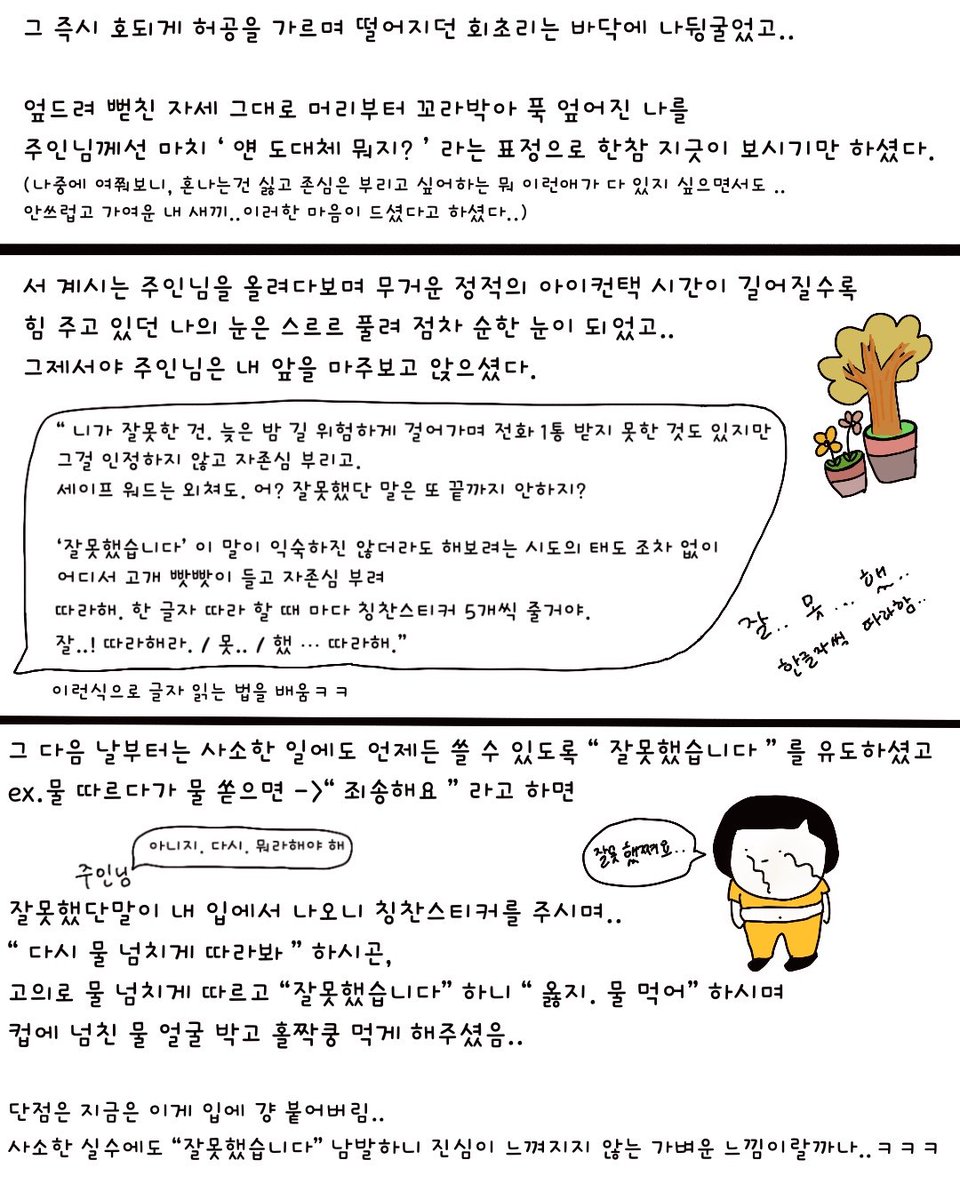 그 즉시 호되게 허공을 가르며 떨어지던 회초리는 바닥에 나뒹굴었고..
엎드려 뻗친 자세 그대로 머리부터 꼬라박아 푹 엎어진 나를
주인님께선 마치 ‘ 얜 도대체 뭐지? ’ 라는 표정으로 한참 지긋이 보시기만 하셨다.
(나중에 여쭤보니, 혼나는건 싫고 존심은 부리고 싶어하는 뭐 이런애가 다 있지 싶으면서도 ..
안쓰럽고 가여운 내 새끼..이러한 마음이 드셨다고 하셨다..)
서 계시는 주인님을 올려다보며 무거운 정적의 아이컨택 시간이 길어질수록
힘 주고 있던 나의 눈은 스르르 풀려 점차 순한 눈이 되었고..
그제서야 주인님은 내 앞을 마주보고 앉으셨다.
“ 니가 잘못한 건. 늦은 밤 길 위험하게 걸어가며 전화 1통 받지 못한 것도 있지만
그걸 인정하지 않고 자존심 부리고.
세이프 워드는 외쳐도. 어? 잘못했단 말은 또 끝까지 안하지?
‘잘못했습니다’ 이 말이 익숙하진 않더라도 해보려는 시도의 태도 조차 없이
어디서 고개 빳빳이 들고 자존심 부려
따라해. 한 글자 따라 할 때 마다 칭찬스티커 5개씩 줄거야.
잘..! 따라해라. / 못.. / 했 … 따라해.”
잘.. 못... 했..
한글자씩 따라함..
이런식으로 글자 읽는 법을 배움ㅋㅋ
그 다음 날부터는 사소한 일에도 언제든 쓸 수 있도록 “ 잘못했습니다 ” 를 유도하셨고
ex.물 따르다가 물 쏟으면 -> “ 죄송해요 ” 라고 하면
아니지. 다시. 뭐라해야 해
주인님
잘못했쪄요..
잘못했단말이 내 입에서 나오니 칭찬스티커를 주시며..
“ 다시 물 넘치게 따라봐 ” 하시곤,
고의로 물 넘치게 따르고 “잘못했습니다” 하니 “ 옳지. 물 먹어” 하시며
컵에 넘친 물 얼굴 박고 홀짝쿵 먹게 해주셨음..
단점은 지금은 이게 입에 걍 붙어버림..
사소한 실수에도 “잘못했습니다” 남발하니 진심이 느껴지지 않는 가벼운 느낌이랄까나..ㅋㅋㅋ